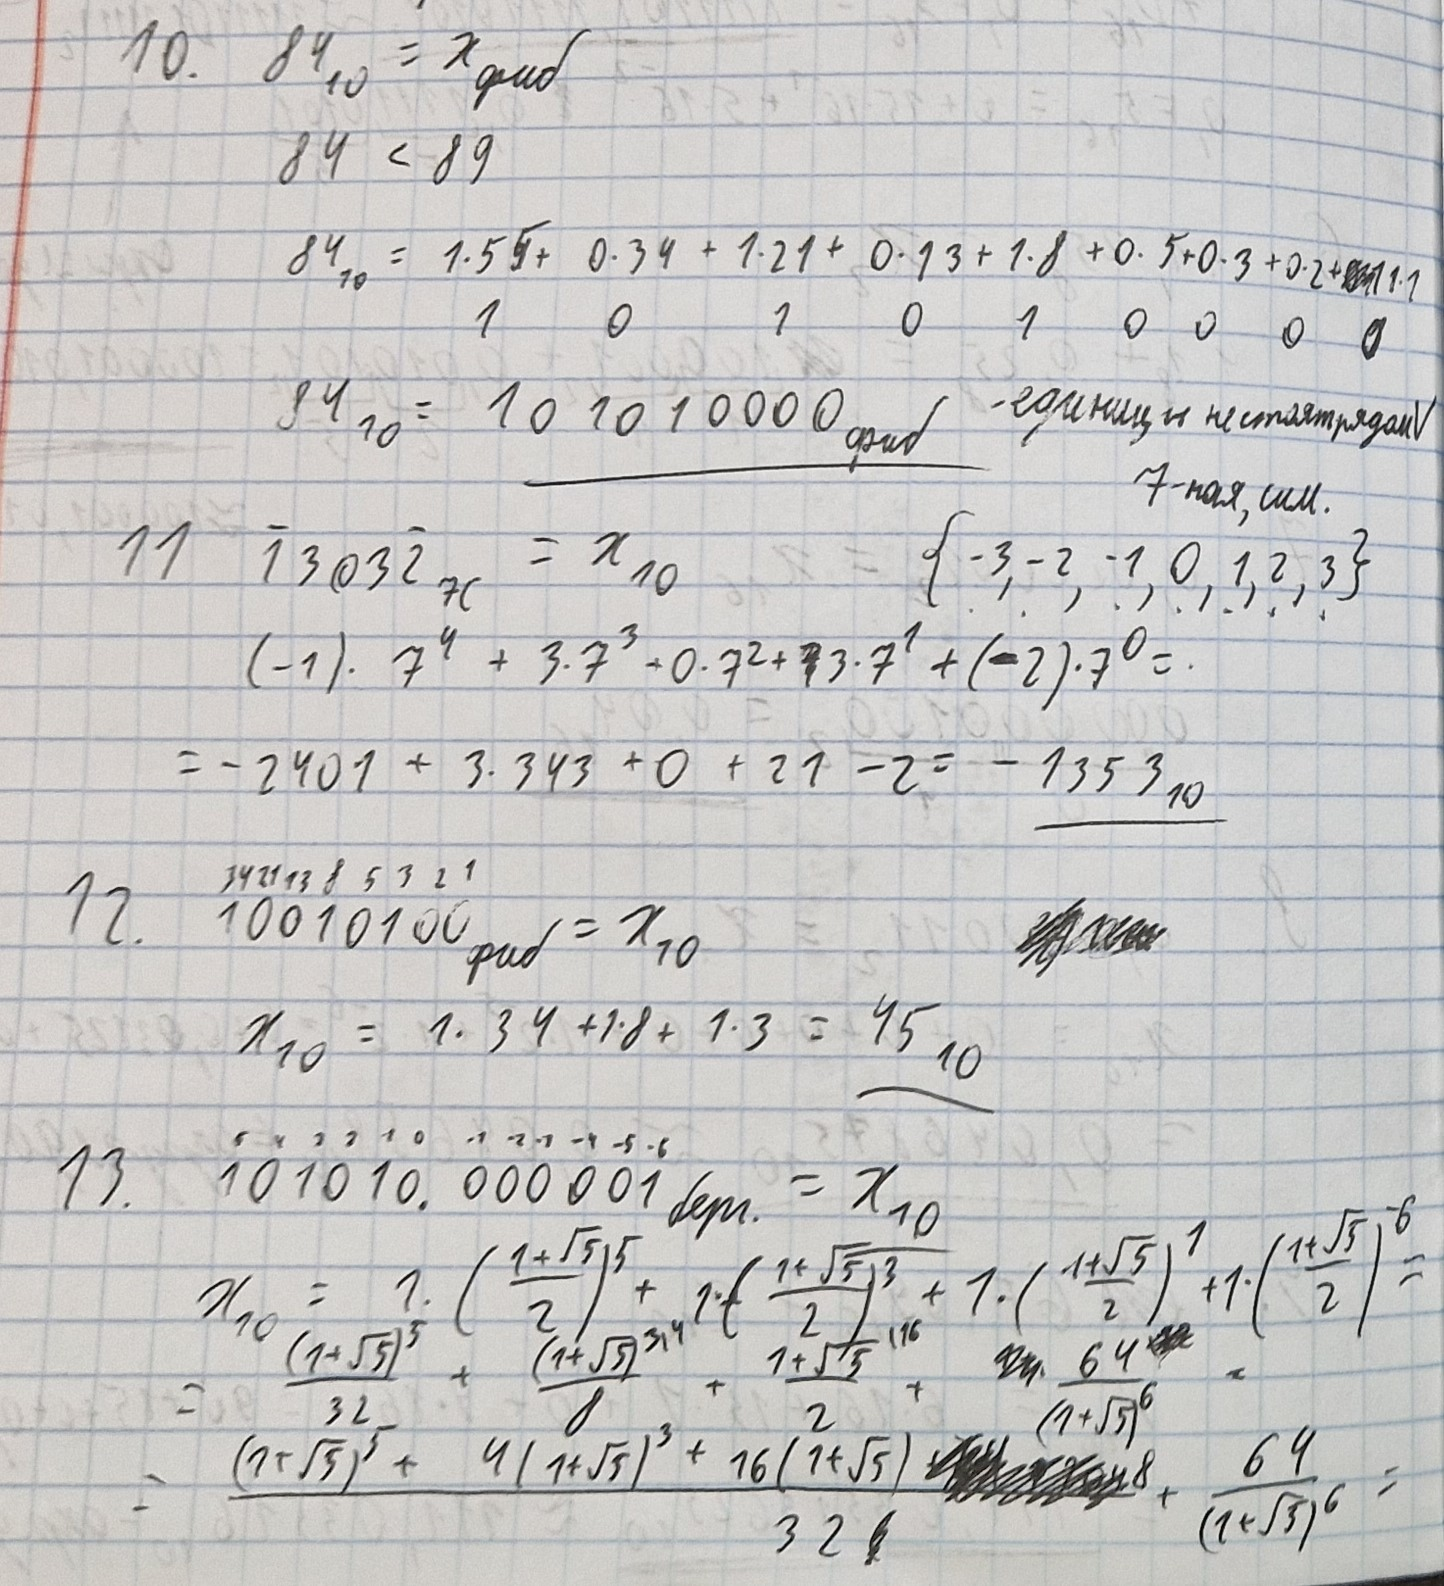 10. 84₁₀ = x фиб
84 < 89
84₁₀ = 1·55 + 0·34 + 1·21 + 0·13 + 1·8 + 0·5 + 0·3 + 0·2 + 1·1
1 0 1 0 1 0 0 0 0
84₁₀ = 101010000 фиб - единицы не стоят рядом V
7-ная, сим.
11 1̄3032̄ ₇С = x₁₀ {-3, -2, -1, 0, 1, 2, 3}
(-1)·7⁴ + 3·7³ + 0·7² + 3·7¹ + (-2)·7⁰ =
= -2401 + 3·343 + 0 + 21 - 2 = -1353₁₀
34 21 13 8 5 3 2 1
12. 10010100 фиб = x₁₀
x₁₀ = 1·34 + 1·8 + 1·3 = 45₁₀
5 4 3 2 1 0 -1 -2 -3 -4 -5 -6
13. 101010.000001 берг. = x₁₀
x₁₀ = 1·((1+√5)/2)⁵ + 1·((1+√5)/2)³ + 1·((1+√5)/2)¹ + 1·((1+√5)/2)⁻⁶ =
= (1+√5)⁵/32 + (1+√5)³/8 ⁽⁴ + (1+√5)/2 ⁽¹⁶ + 64/(1+√5)⁶ =
= ((1+√5)⁵ + 4(1+√5)³ + 16(1+√5))/32 + 64/(1+√5)⁶ =